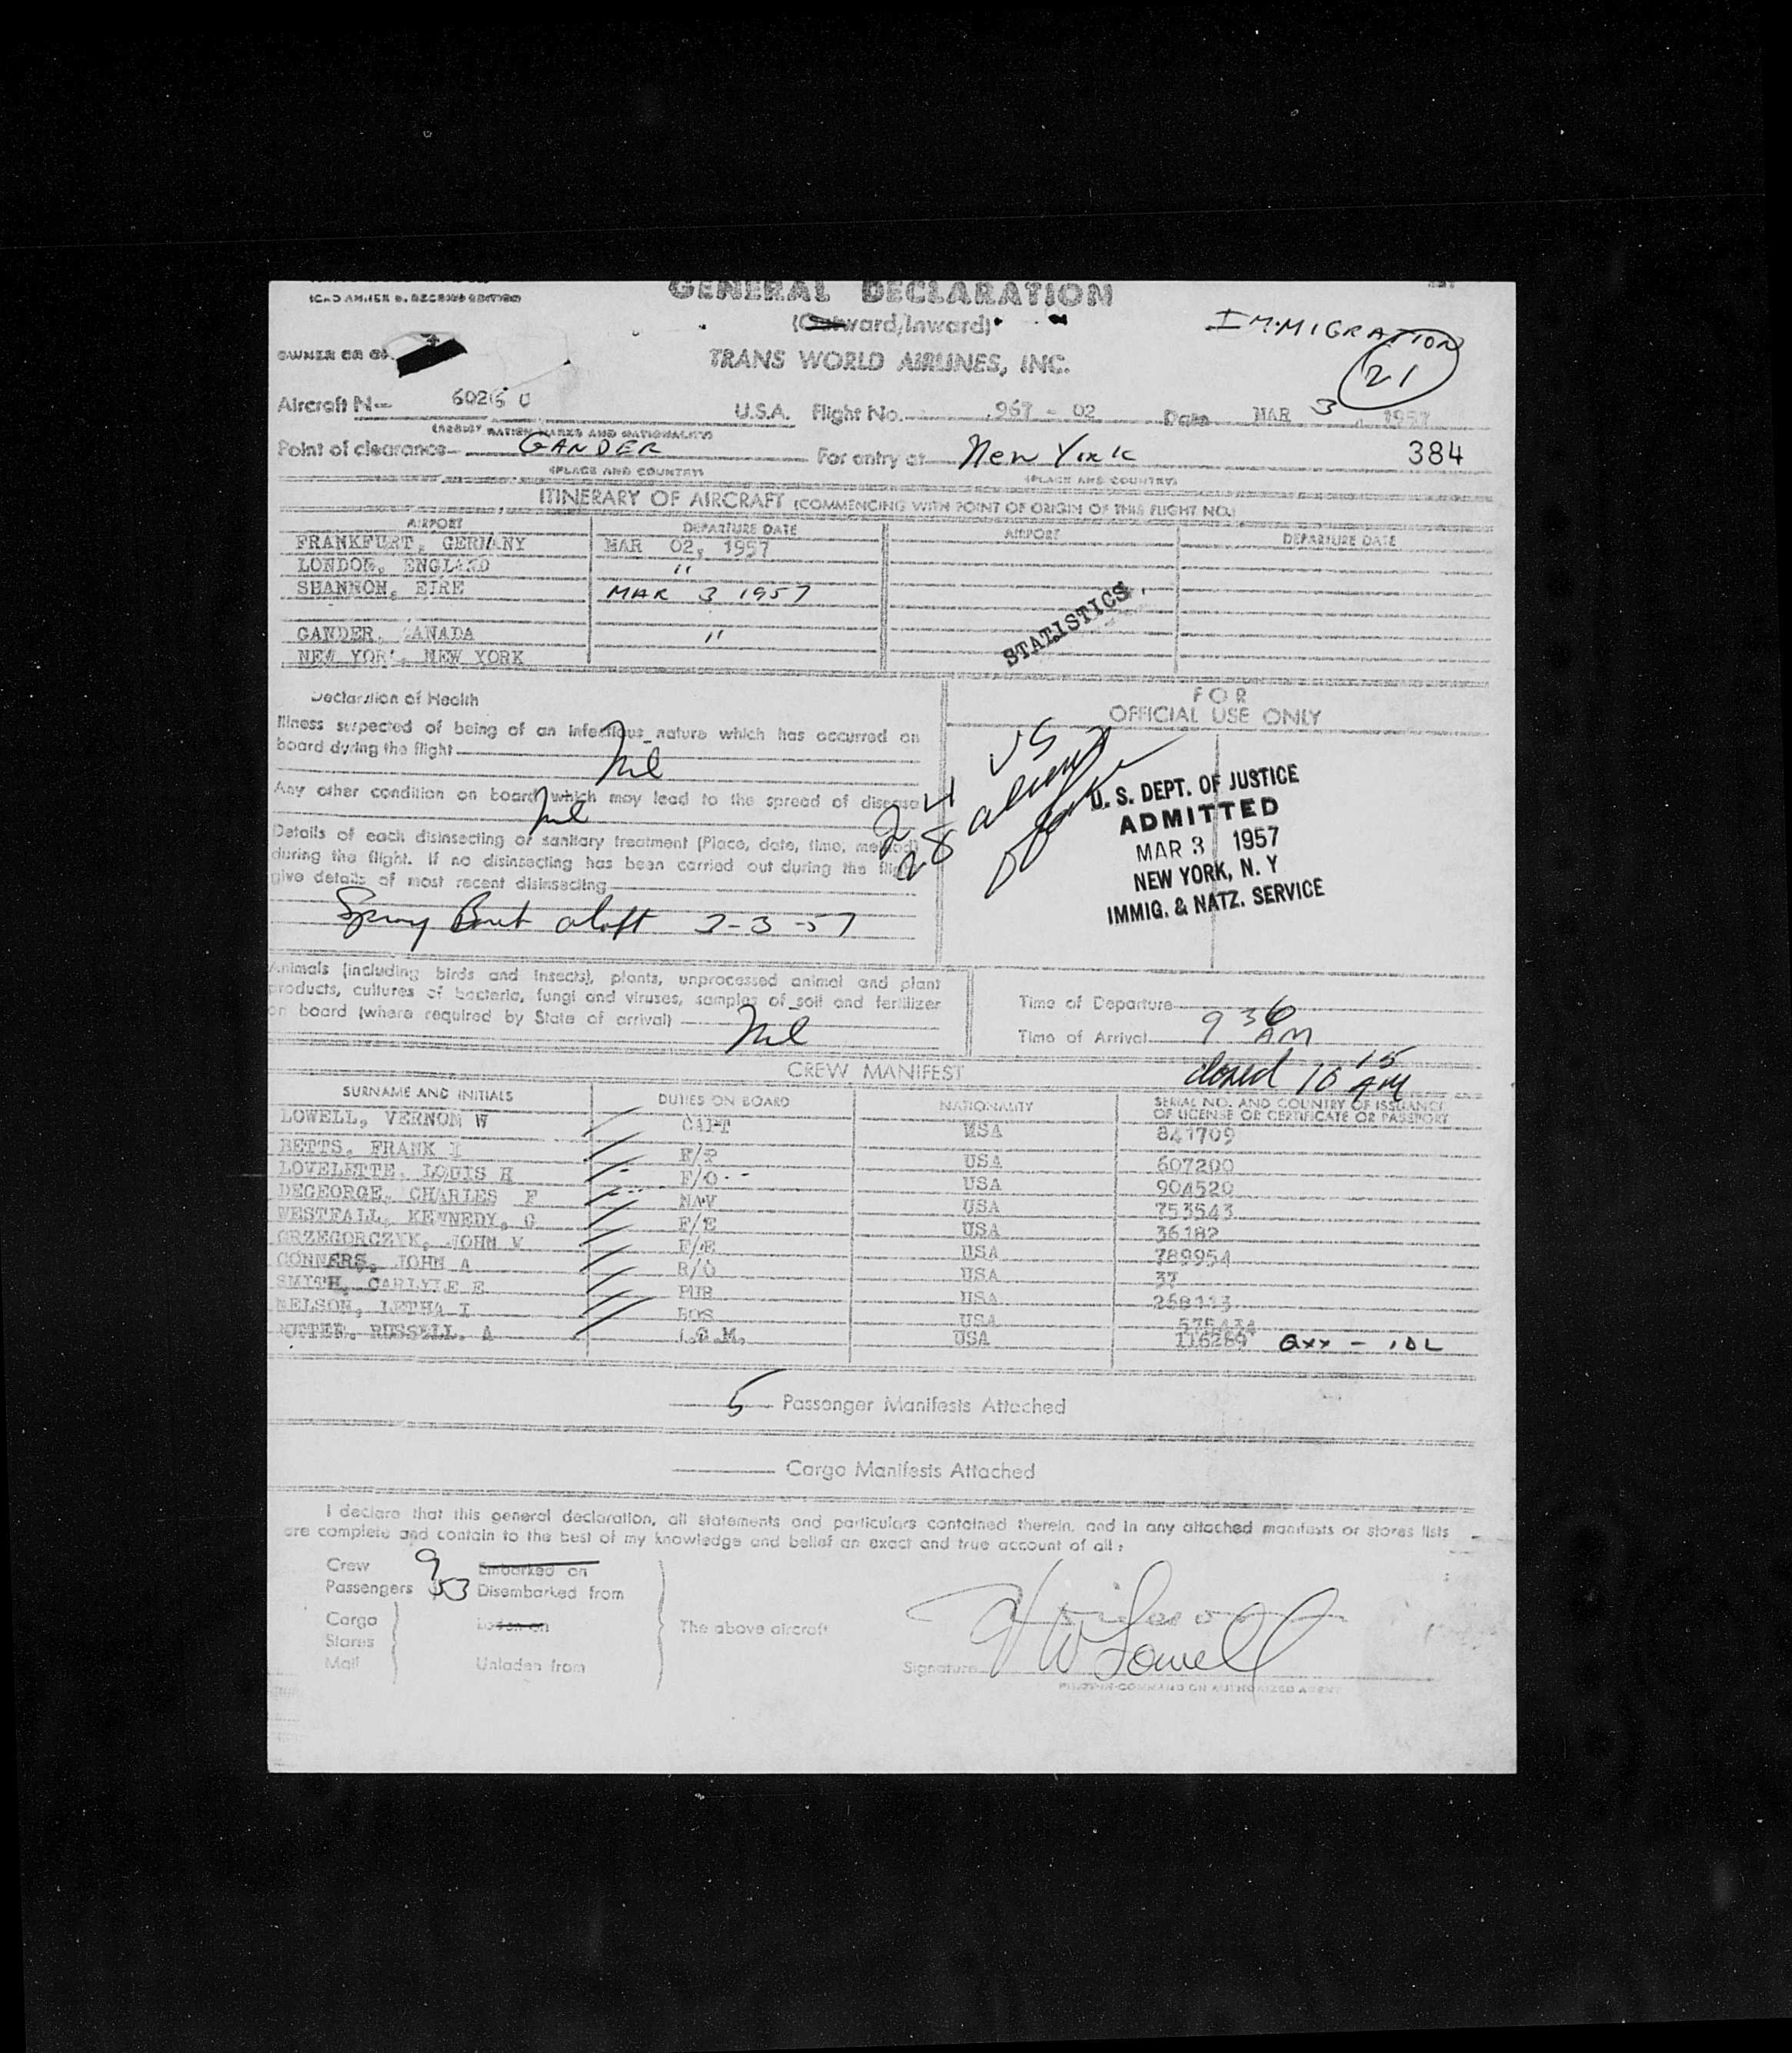 GENERAL DECLARATION
(Outward/Inward)
IMMIGRATION
21
OWNER OR
TRANS WORLD AIRLINES, INC.
Aircraft N— U.S.A. Flight No. 967 - 02 Date MAR 3 1957
(REGISTRATION MARKS AND NATIONALITY)
Point of clearance GANDER For entry at New York 384
(PLACE AND COUNTRY) (PLACE AND COUNTRY)
ITINERARY OF AIRCRAFT (COMMENCING WITH POINT OF ORIGIN OF THIS FLIGHT NO.)
AIRPORT DEPARTURE DATE AIRPORT DEPARTURE DATE
FRANKFURT, GERMANY MAR 02, 1957
LONDON, ENGLAND "
SHANNON, EIRE MAR 3 1957
GANDER, CANADA "
NEW YORK, NEW YORK
STATISTICS
Declaration of Health
FOR
OFFICIAL USE ONLY
Illness suspected of being of an infectious nature which has occurred on
board during the flight Nil
Any other condition on board which may lead to the spread of disease
Nil
Details of each disinsecting or sanitary treatment (Place, date, time, method)
during the flight. If no disinsecting has been carried out during the flight
give details of most recent disinsecting
Spray Bomb aloft 3-3-57
US
28 aliens
U. S. DEPT. OF JUSTICE
ADMITTED
MAR 3 1957
NEW YORK, N. Y
IMMIG. & NATZ. SERVICE
Animals (including birds and insects), plants, unprocessed animal and plant
products, cultures of bacteria, fungi and viruses, samples of soil and fertilizer
on board (where required by State of arrival) Nil
Time of Departure
Time of Arrival 9 36 AM
closed 10 15 AM
CREW MANIFEST
SURNAME AND INITIALS DUTIES ON BOARD NATIONALITY SERIAL NO. AND COUNTRY OF ISSUANCE
OF LICENSE OR CERTIFICATE OR PASSPORT
LOWELL, VERNON W CAPT USA 841709
BETTS, FRANK USA 607200
LOVELETTE, LOUIS H F/O USA 904520
DEGEORGE, CHARLES F NAV USA 753543
WESTFALL, KENNEDY, G F/E USA 36182
GRZEGORCZYK, JOHN W F/E USA 789954
CONNERS, JOHN A R/O USA 37
SMITH, CARLYLE E PUR USA 268113
NELSON, LETHA I HOS USA 575434
RUSSELL, A USA 116289
5 Passenger Manifests Attached
Cargo Manifests Attached
I declare that this general declaration, all statements and particulars contained therein, and in any attached manifests or stores lists
are complete and contain to the best of my knowledge and belief an exact and true account of all:
Crew 9 Embarked on
Passengers 53 Disembarked from
Cargo Laden on
Stores
Mail Unladen from
The above aircraft
Signature VW Lowell
PILOT-IN-COMMAND OR AUTHORIZED AGENT